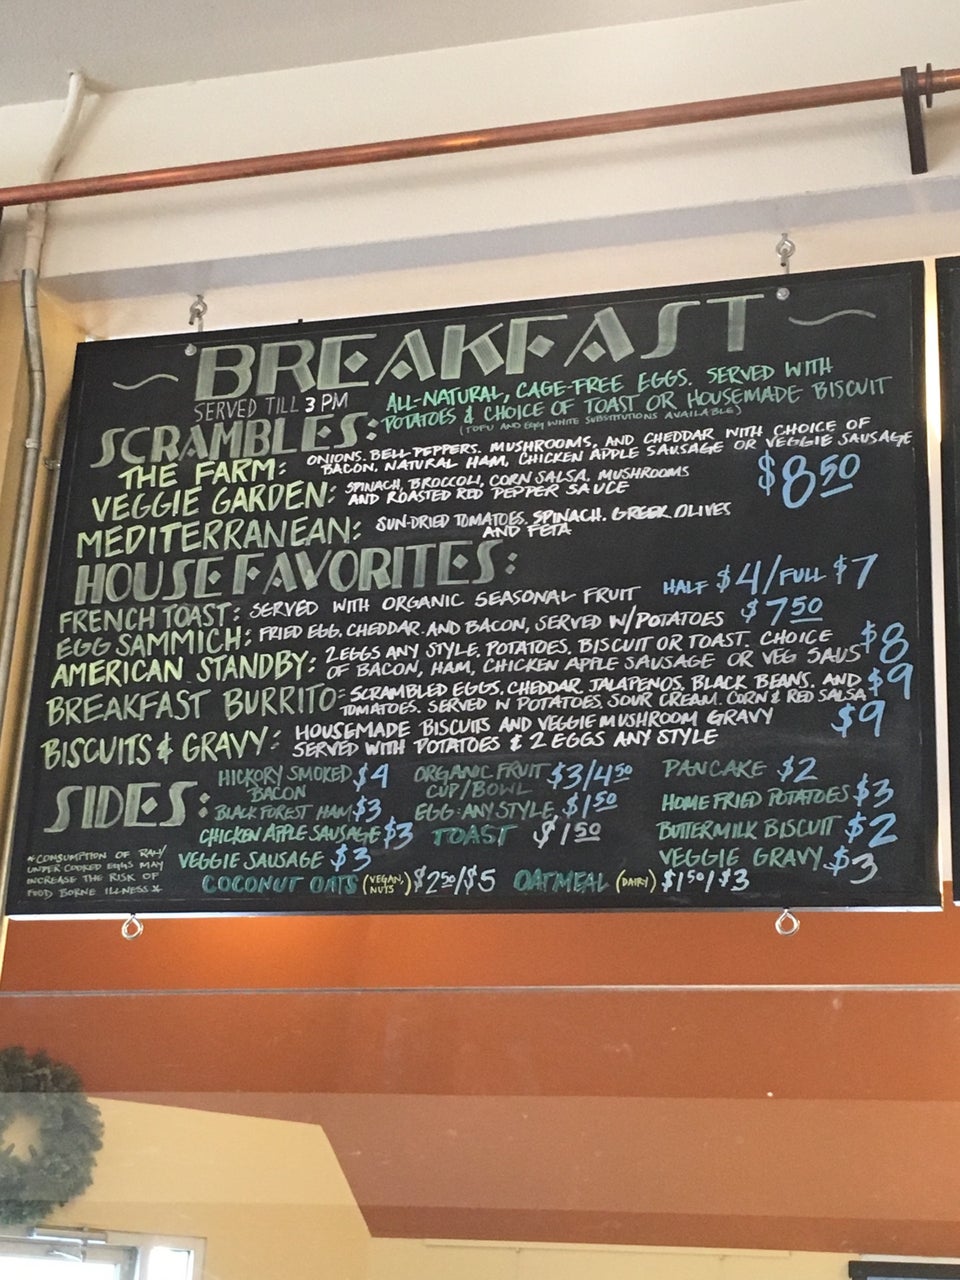 ~ BREAKFAST ~
SERVED TILL 3 PM
ALL-NATURAL, CAGE-FREE EGGS. SERVED WITH
POTATOES & CHOICE OF TOAST OR HOUSEMADE BISCUIT
(TOFU AND EGG WHITE SUBSTITUTIONS AVAILABLE)
SCRAMBLES:
THE FARM: ONIONS. BELL PEPPERS. MUSHROOMS. AND CHEDDAR WITH CHOICE OF
BACON, NATURAL HAM, CHICKEN APPLE SAUSAGE OR VEGGIE SAUSAGE
VEGGIE GARDEN: SPINACH, BROCCOLI, CORN SALSA, MUSHROOMS
AND ROASTED RED PEPPER SAUCE
$8.50
MEDITERRANEAN: SUN-DRIED TOMATOES. SPINACH. GREEK OLIVES
AND FETA
HOUSE FAVORITES:
FRENCH TOAST: SERVED WITH ORGANIC SEASONAL FRUIT HALF $4/FULL $7
EGG SAMMICH: FRIED EGG, CHEDDAR AND BACON, SERVED W/POTATOES $7.50
AMERICAN STANDBY: 2 EGGS ANY STYLE, POTATOES, BISCUIT OR TOAST. CHOICE
OF BACON, HAM, CHICKEN APPLE SAUSAGE OR VEG SAUS $8
BREAKFAST BURRITO: SCRAMBLED EGGS, CHEDDAR, JALAPENOS, BLACK BEANS, AND
TOMATOES. SERVED W POTATOES, SOUR CREAM. CORN & RED SALSA $9
BISCUITS & GRAVY: HOUSEMADE BISCUITS AND VEGGIE MUSHROOM GRAVY
SERVED WITH POTATOES & 2 EGGS ANY STYLE $9
SIDES:
HICKORY SMOKED BACON $4
BLACK FOREST HAM $3
CHICKEN APPLE SAUSAGE $3
VEGGIE SAUSAGE $3
ORGANIC FRUIT CUP/BOWL $3/4.50
EGG: ANY STYLE, $1.50
TOAST $1.50
PANCAKE $2
HOME FRIED POTATOES $3
BUTTERMILK BISCUIT $2
VEGGIE GRAVY $3
COCONUT OATS (VEGAN, NUTS) $2.50/$5
OATMEAL (DAIRY) $1.50/$3
*CONSUMPTION OF RAW/
UNDER COOKED EGGS MAY
INCREASE THE RISK OF
FOOD BORNE ILLNESS*